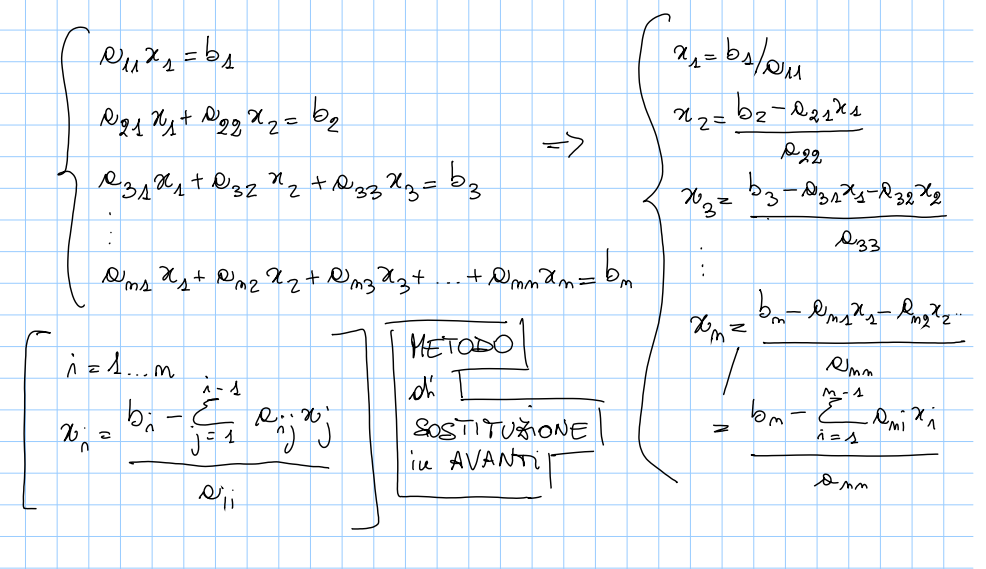 a₁₁x₁ = b₁
a₂₁x₁ + a₂₂x₂ = b₂
a₃₁x₁ + a₃₂x₂ + a₃₃x₃ = b₃
⋮
aₙ₁x₁ + aₙ₂x₂ + aₙ₃x₃ + ... + aₙₙxₙ = bₙ
⇒
x₁ = b₁/a₁₁
x₂ = (b₂ - a₂₁x₁) / a₂₂
x₃ = (b₃ - a₃₁x₁ - a₃₂x₂) / a₃₃
⋮
xₙ = (bₙ - aₙ₁x₁ - aₙ₂x₂..) / aₙₙ
= (bₙ - ∑_{i=1}^{n-1} aₙᵢxᵢ) / aₙₙ
i = 1...n
xᵢ = (bᵢ - ∑_{j=1}^{i-1} aᵢⱼxⱼ) / aᵢᵢ
METODO
di
SOSTITUZIONE
in AVANTI